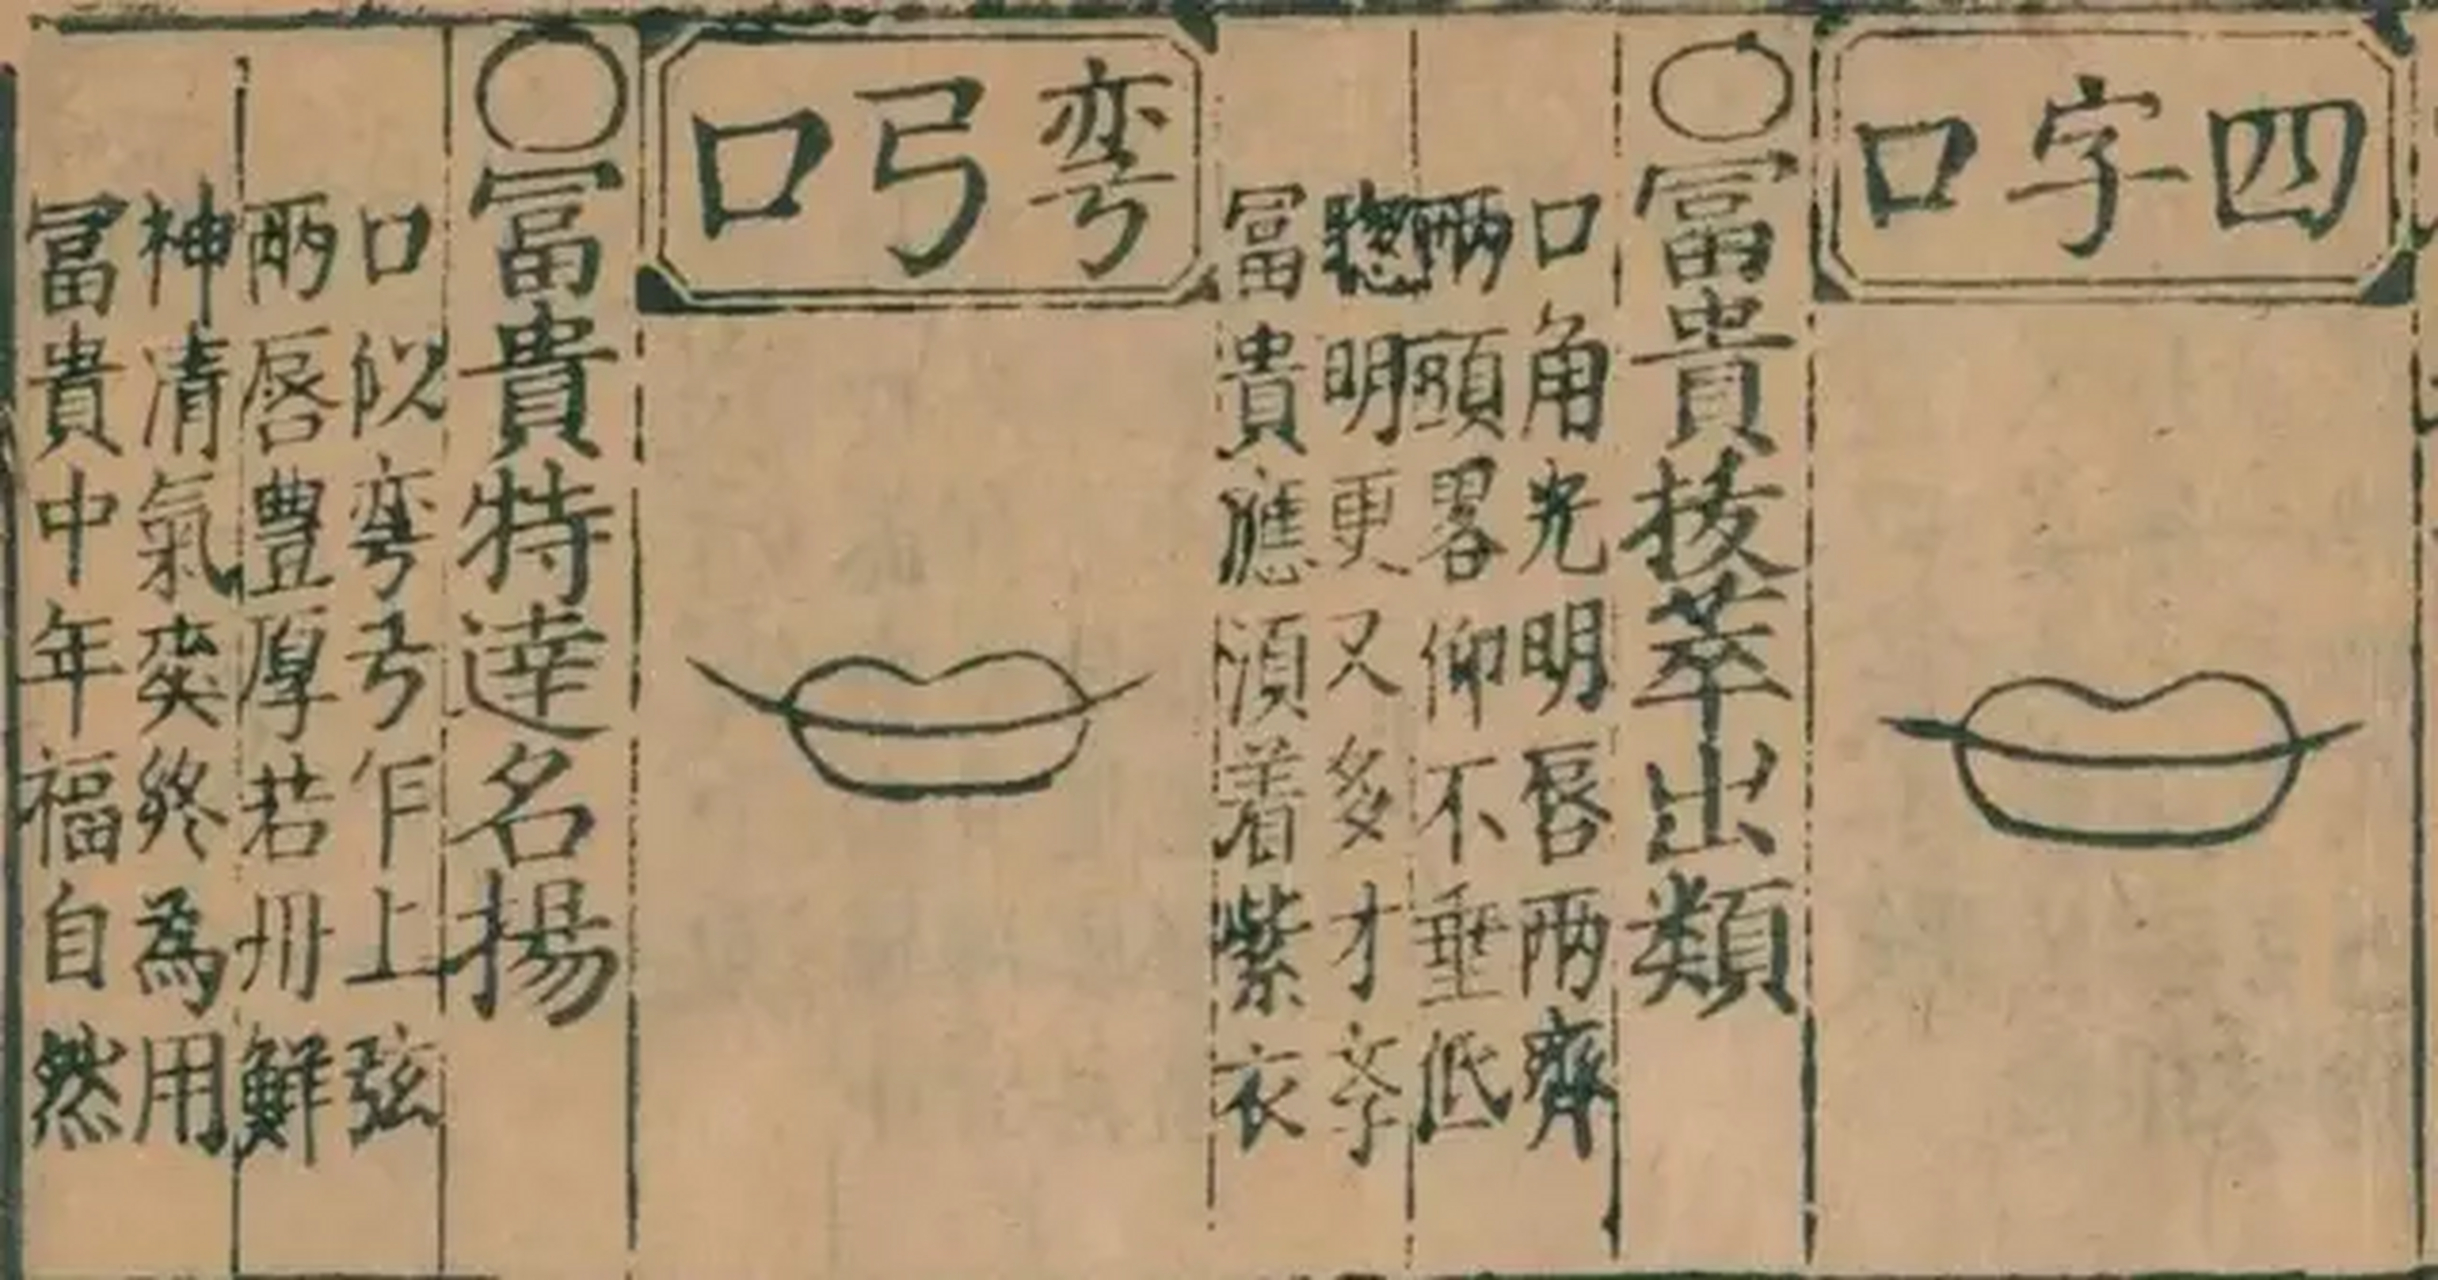 四字口
○冨貴拔萃出類
口角光明唇兩齊
兩頭畧仰不垂低
聰明更又多才學
冨貴應須着紫衣
弯弓口
○冨貴特達名揚
口似弯弓乍上弦
兩唇豊厚若丹鮮
神清氣爽終為用
冨貴中年福自然